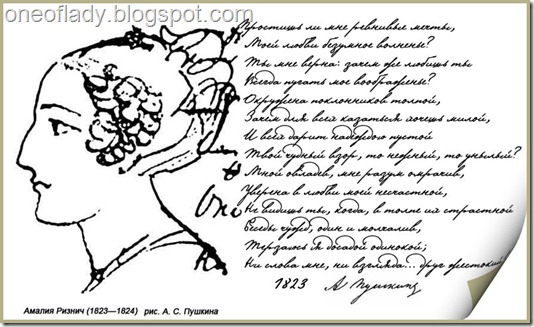 oneoflady.blogspot.com
Простишь ли мне ревнивые мечты,
Моей любви безумное волненье?
Ты мне верна: зачем же любишь ты
Всегда пугать мое воображенье?
Окружена поклонников толпой,
Зачем для всех казаться хочешь милой,
И всех дарит надеждою пустой
Твой чудный взор, то нежный, то унылый?
Мной овладев, мне разум омрачив,
Уверена в любви моей несчастной,
Не видишь ты, когда, в толпе их страстной
Беседы чужд, один и молчалив,
Терзаюсь я досадой одинокой;
Ни слова мне, ни взгляда... друг жестокий
1823 А Пушкинъ
Амалия Ризнич (1823—1824) рис. А. С. Пушкина